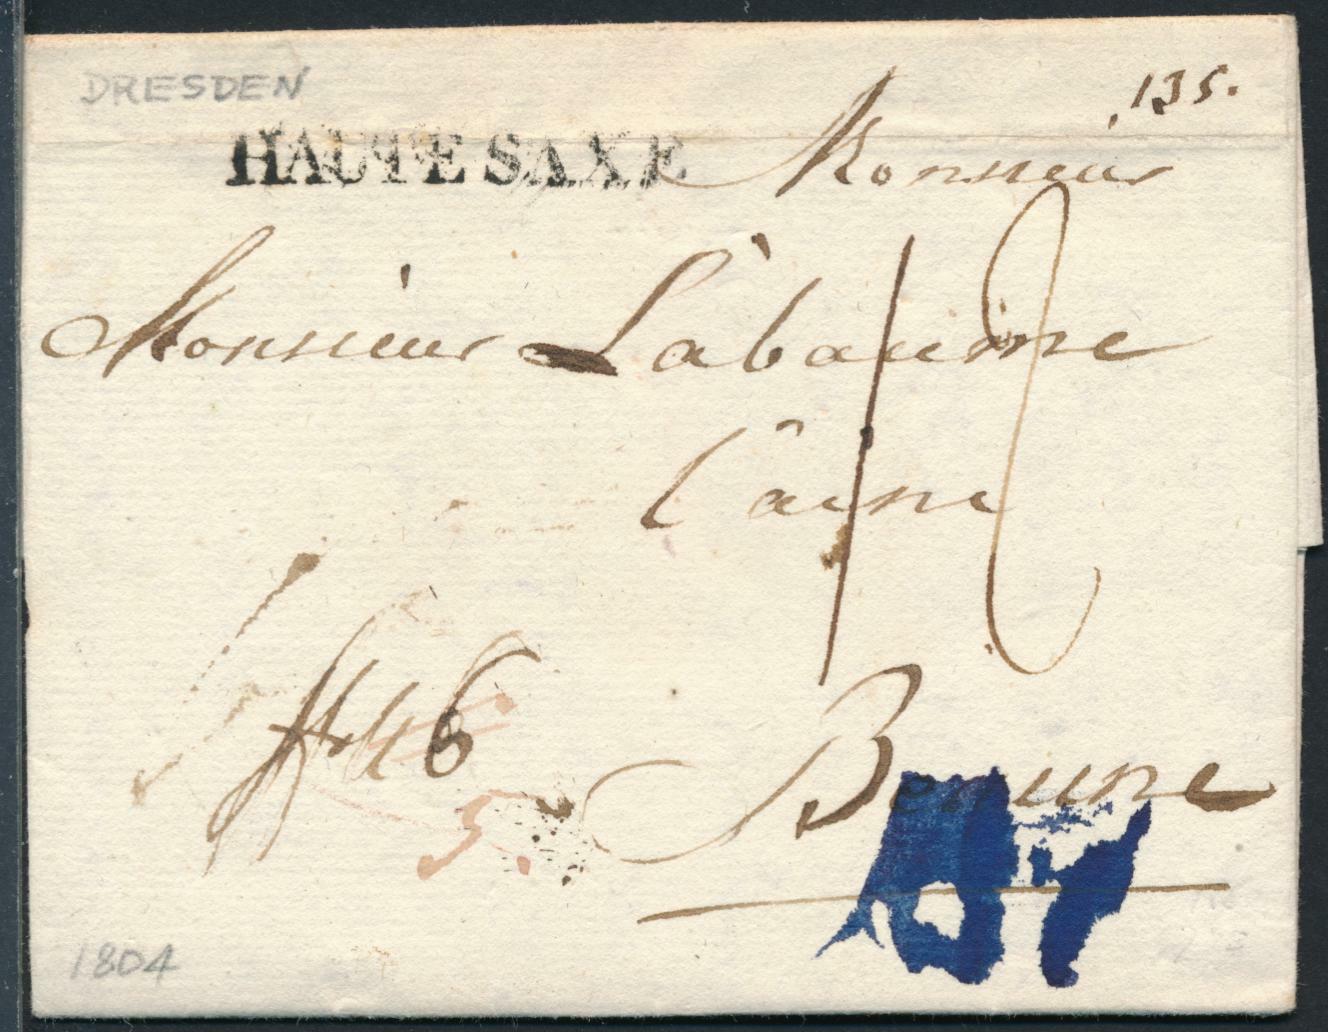 DRESDEN
135.
HAUTE SAXE
Monsieur
Monsieur Labaume
l'ainé
12
6
5.
Beaune
1804